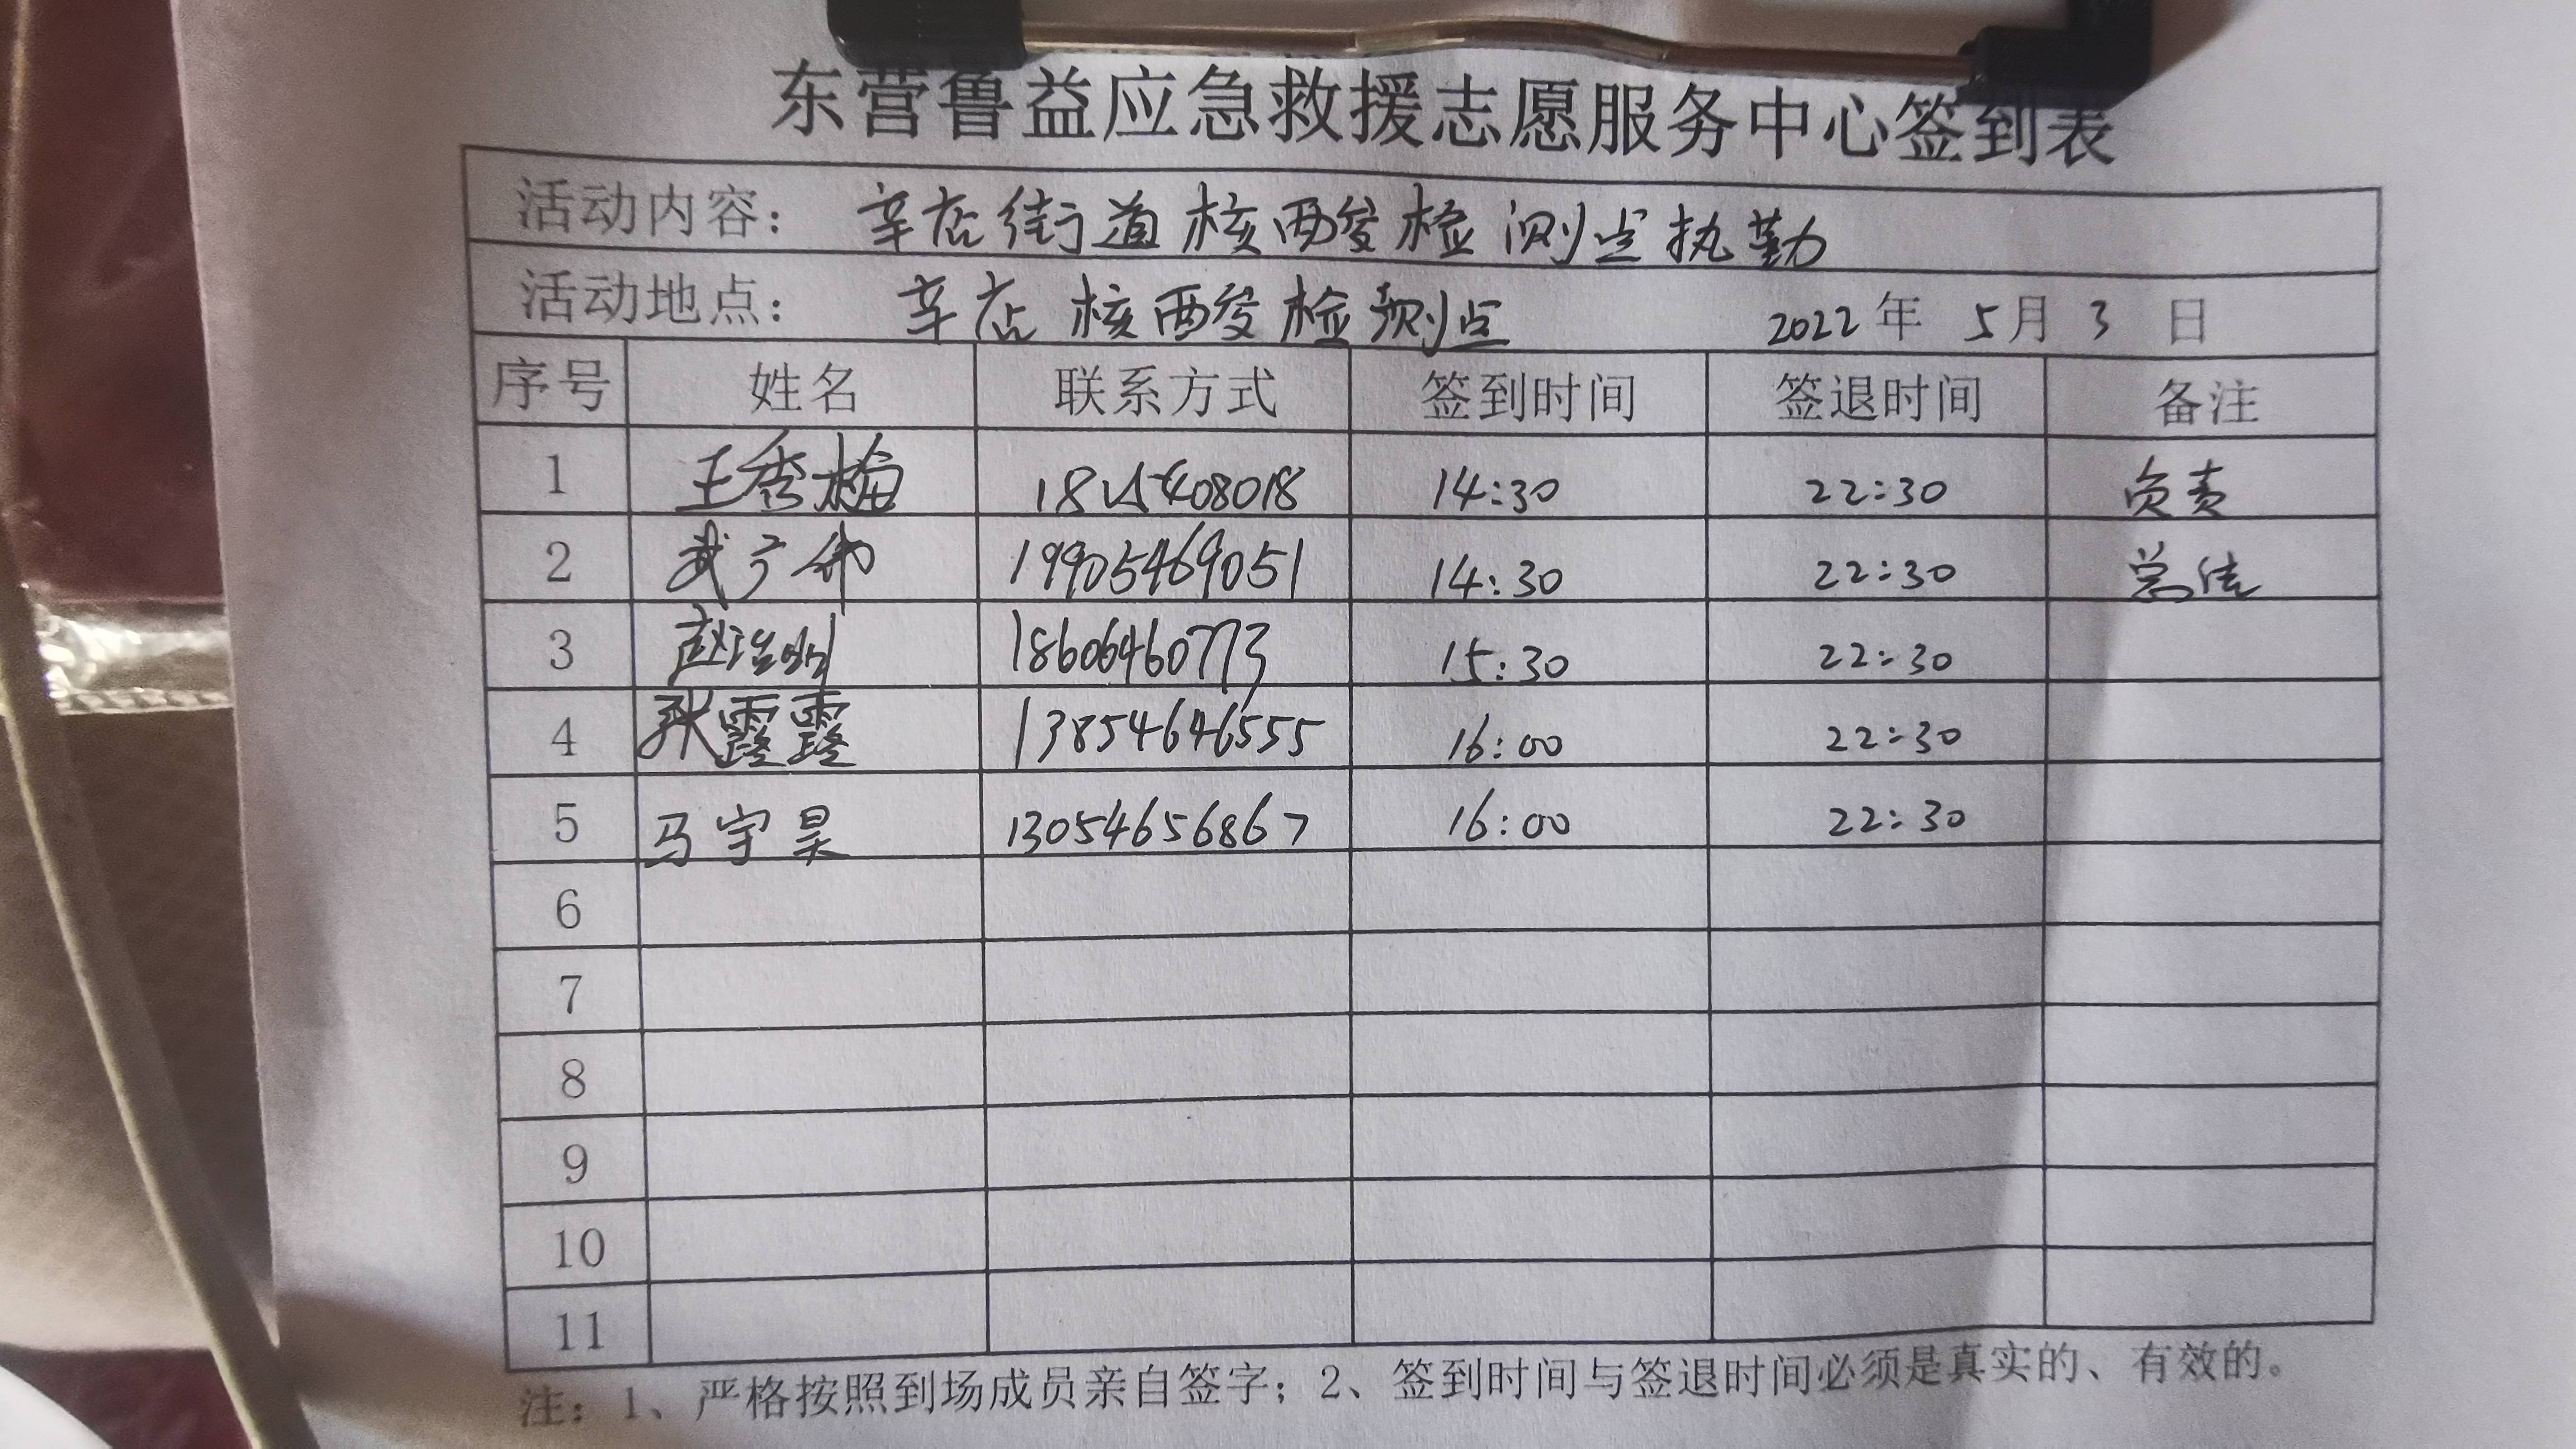 东营鲁益应急救援志愿服务中心签到表
活动内容： 辛店街道核酸检测点执勤
活动地点： 辛店核酸检测点 2022年 5月 3 日
序号 姓名 联系方式 签到时间 签退时间 备注
1 王秀梅 14:30 22:30 负责
2 武广 19905469051 14:30 22:30
3 赵 18606460773 15:30 22:30
4 耿露露 13854646555 16:00 22:30
5 马宇昊 13054656867 16:00 22:30
6
7
8
9
10
11
注：1、严格按照到场成员亲自签字；2、签到时间与签退时间必须是真实的、有效的。